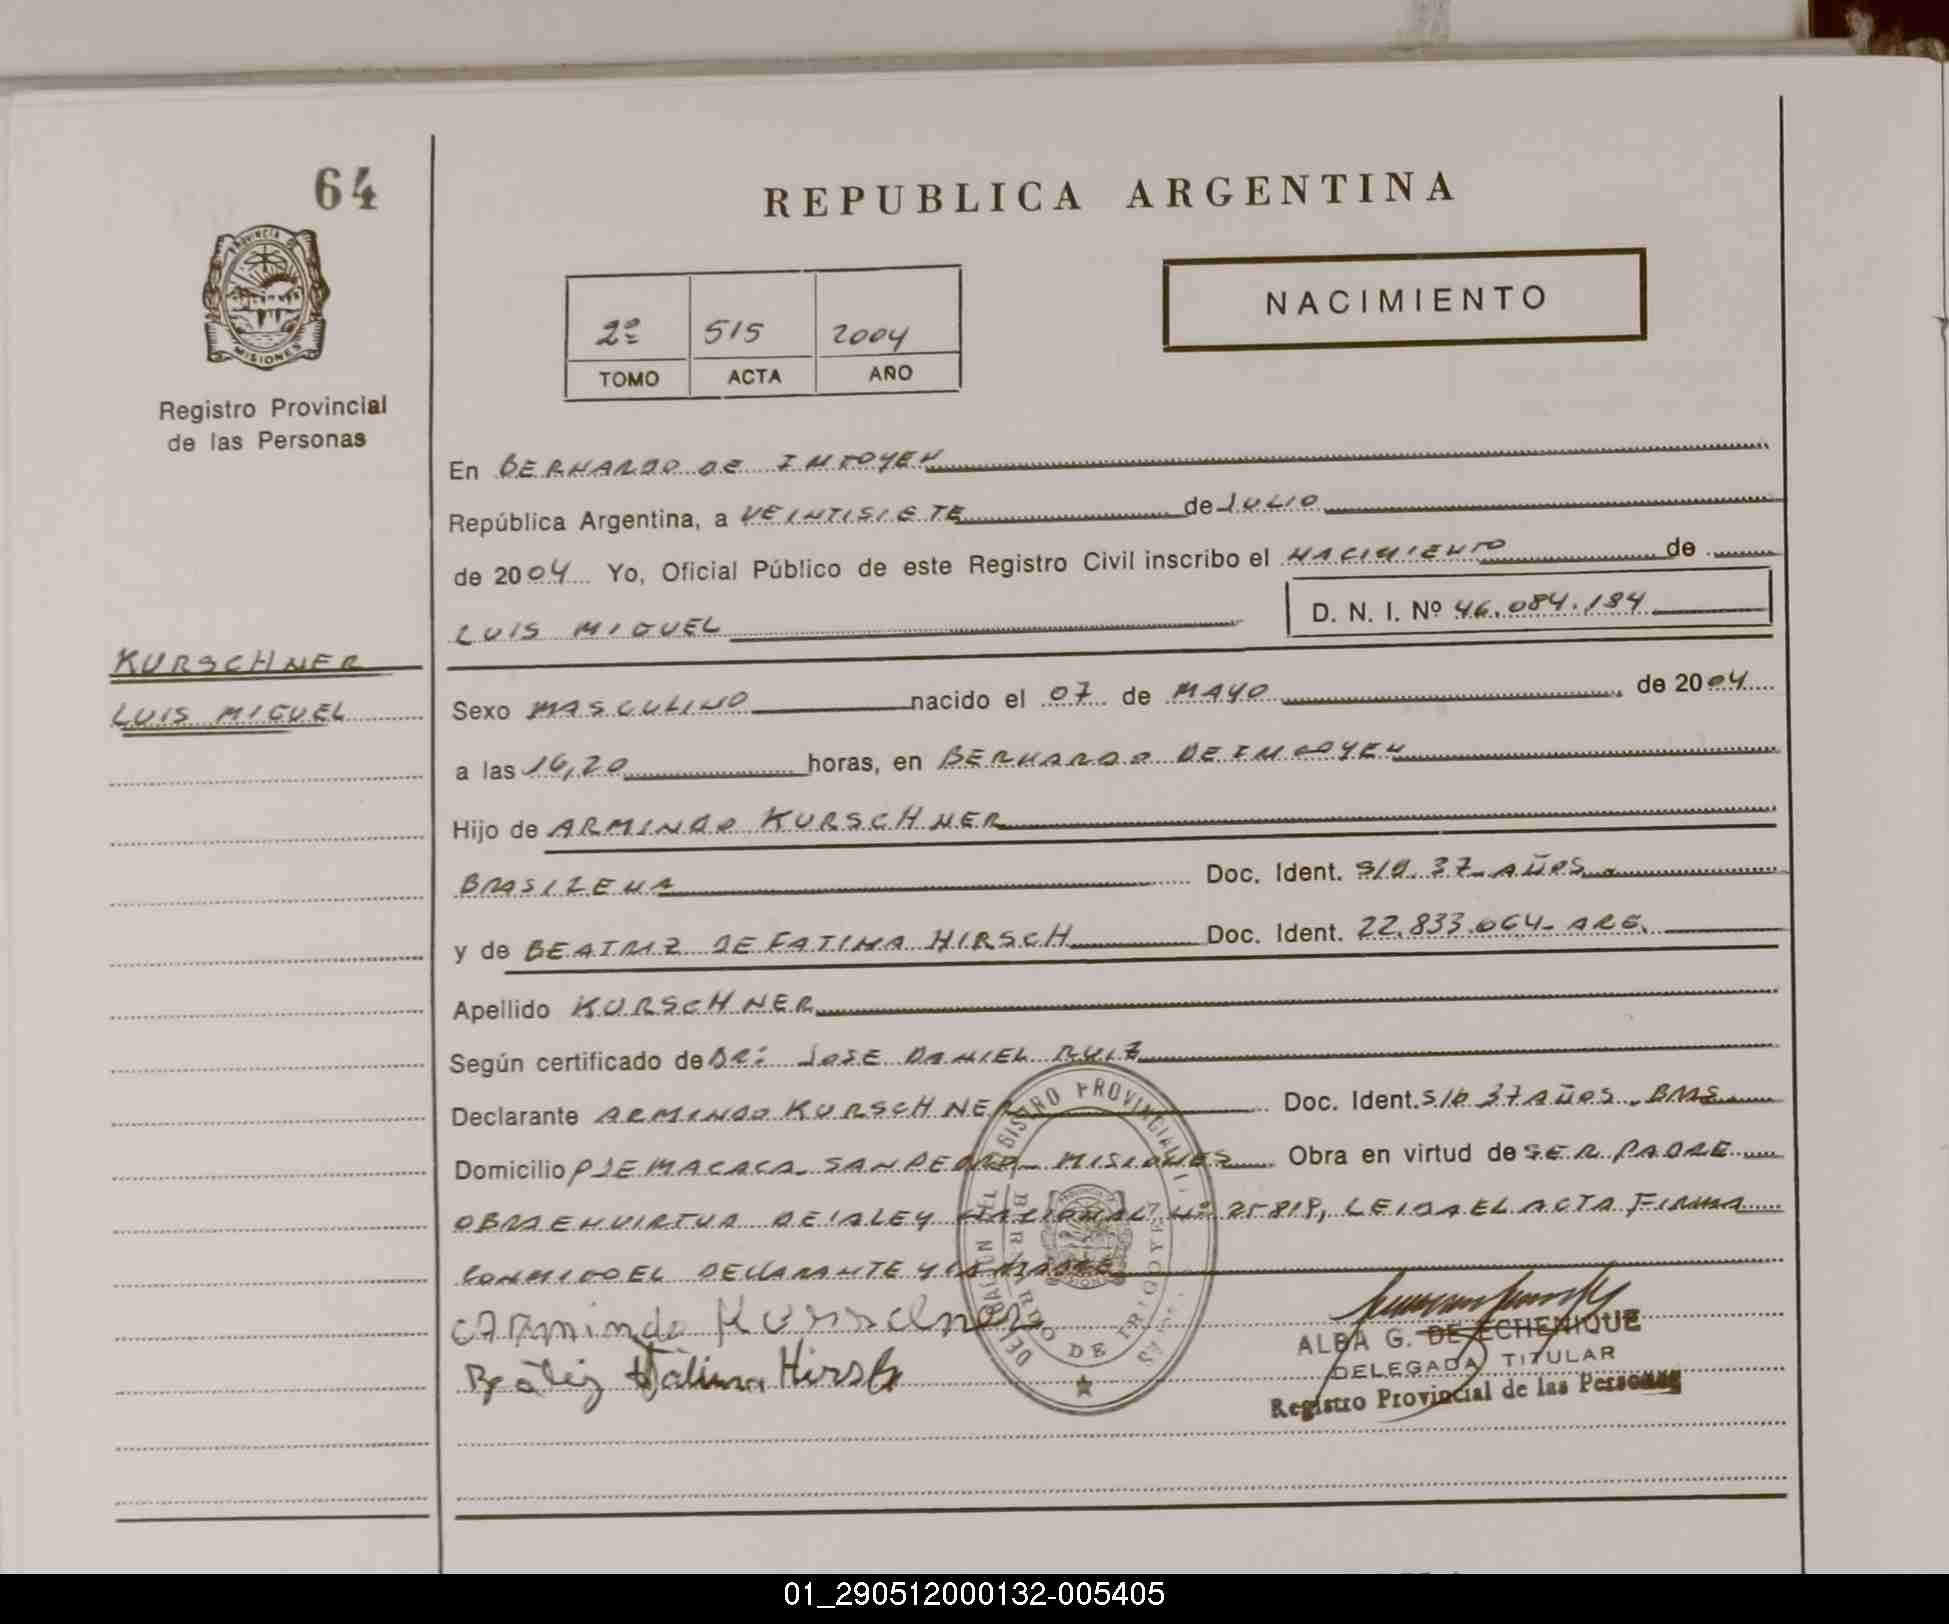 64
REPUBLICA ARGENTINA
NACIMIENTO
2º 515 2004
TOMO ACTA AÑO
PROVINCIA DE
MISIONES
Registro Provincial
de las Personas
En BERNARDO DE IRIGOYEN
República Argentina, a VEINTISIETE de JULIO
de 2004 Yo, Oficial Público de este Registro Civil inscribo el NACIMIENTO de
LUIS MIGUEL D. N. I. Nº 46.084.184
KURSCHNER
LUIS MIGUEL
Sexo MASCULINO nacido el 07 de MAYO de 2004
a las 16,20 horas, en BERNARDO DE IRIGOYEN
Hijo de ARMINDO KURSCHNER
BRASILENA Doc. Ident. S/D. 37- AÑOS.
y de BEATRIZ DE FATIMA HIRSCH Doc. Ident. 22.833.064- ARG.
Apellido KURSCHNER
Según certificado de DR: JOSE DANIEL RUIZ
Declarante ARMINDO KURSCHNER Doc. Ident. S/D 37 AÑOS. BRAS
Domicilio PJE MACACA- SAN PEDRO- MISIONES Obra en virtud de SER PADRE
OBRA EN VIRTUD DE LA LEY NACIONAL Nº 25819, LEIDA EL ACTA FIRMA
CONMIGO EL DECLARANTE Y LA MADRE
Armindo Kurschner
Beatriz Fatima Hirsch
REGISTRO PROVINCIAL
DELEGACIÓN TITULAR
BERNARDO DE IRIGOYEN
ALBA G. DE ECHENIQUE
DELEGADA TITULAR
Registro Provincial de las Personas
01_290512000132-005405